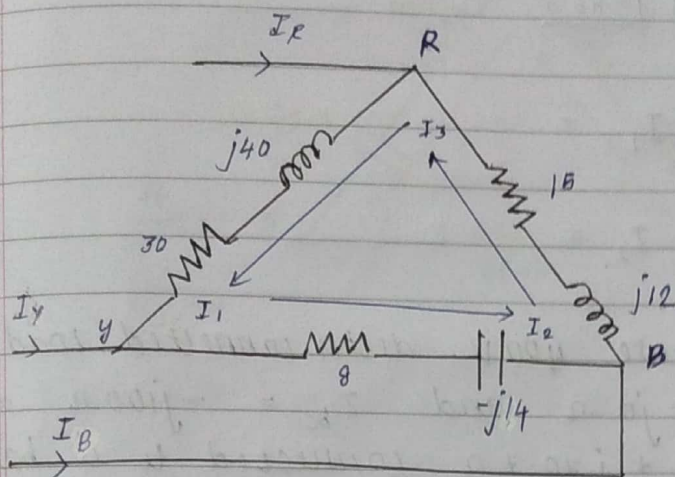 I_R
R
j40
I_3
15
30
j12
I_Y
I_1
I_2
Y
8
-j14
B
I_B